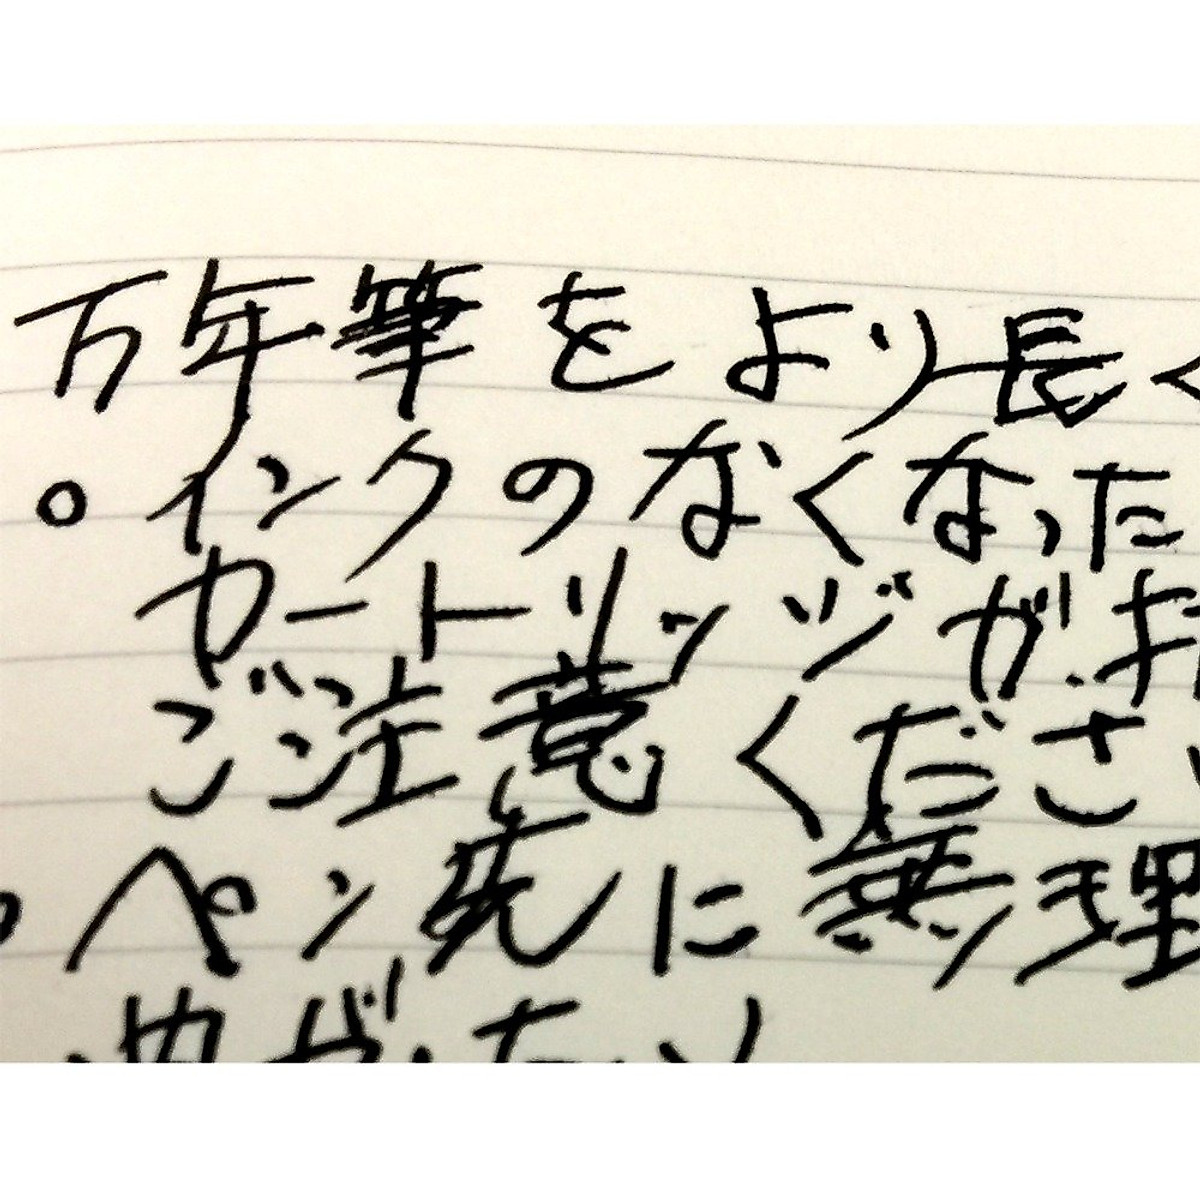 万年筆をより長く
。インクのなくなった
カートリッジが、お
ご注意くださ
。ペン先に無理